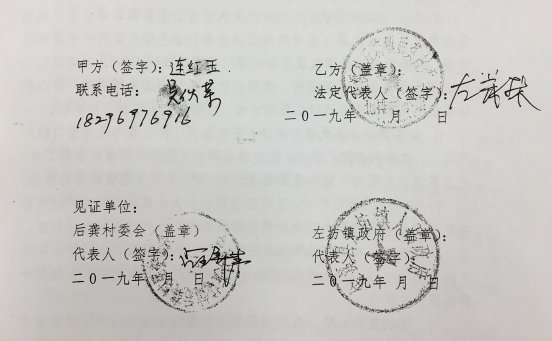 甲方（签字）：连红玉
联系电话：
18296976916
乙方（盖章）：
法定代表人（签字）：
二0一九年 月 日
见证单位：
后龚村委会（盖章）
代表人（签字）：
二0一九年 月 日
左坊镇政府（盖章）：
代表人（签字）：
二0一九年 月 日